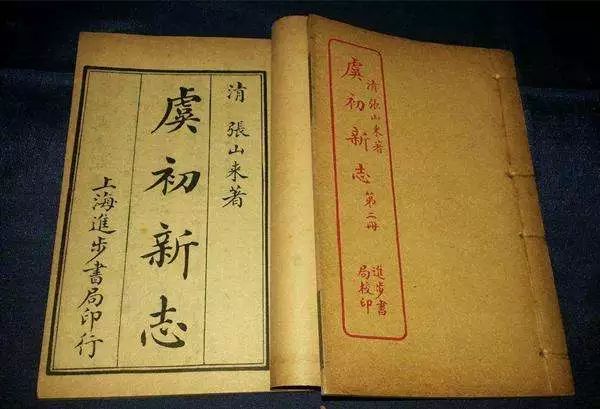 清 張山来著
虞初新志
上海進步書局印行
清 張山来著
虞初新志 第二冊
進步書
局校印